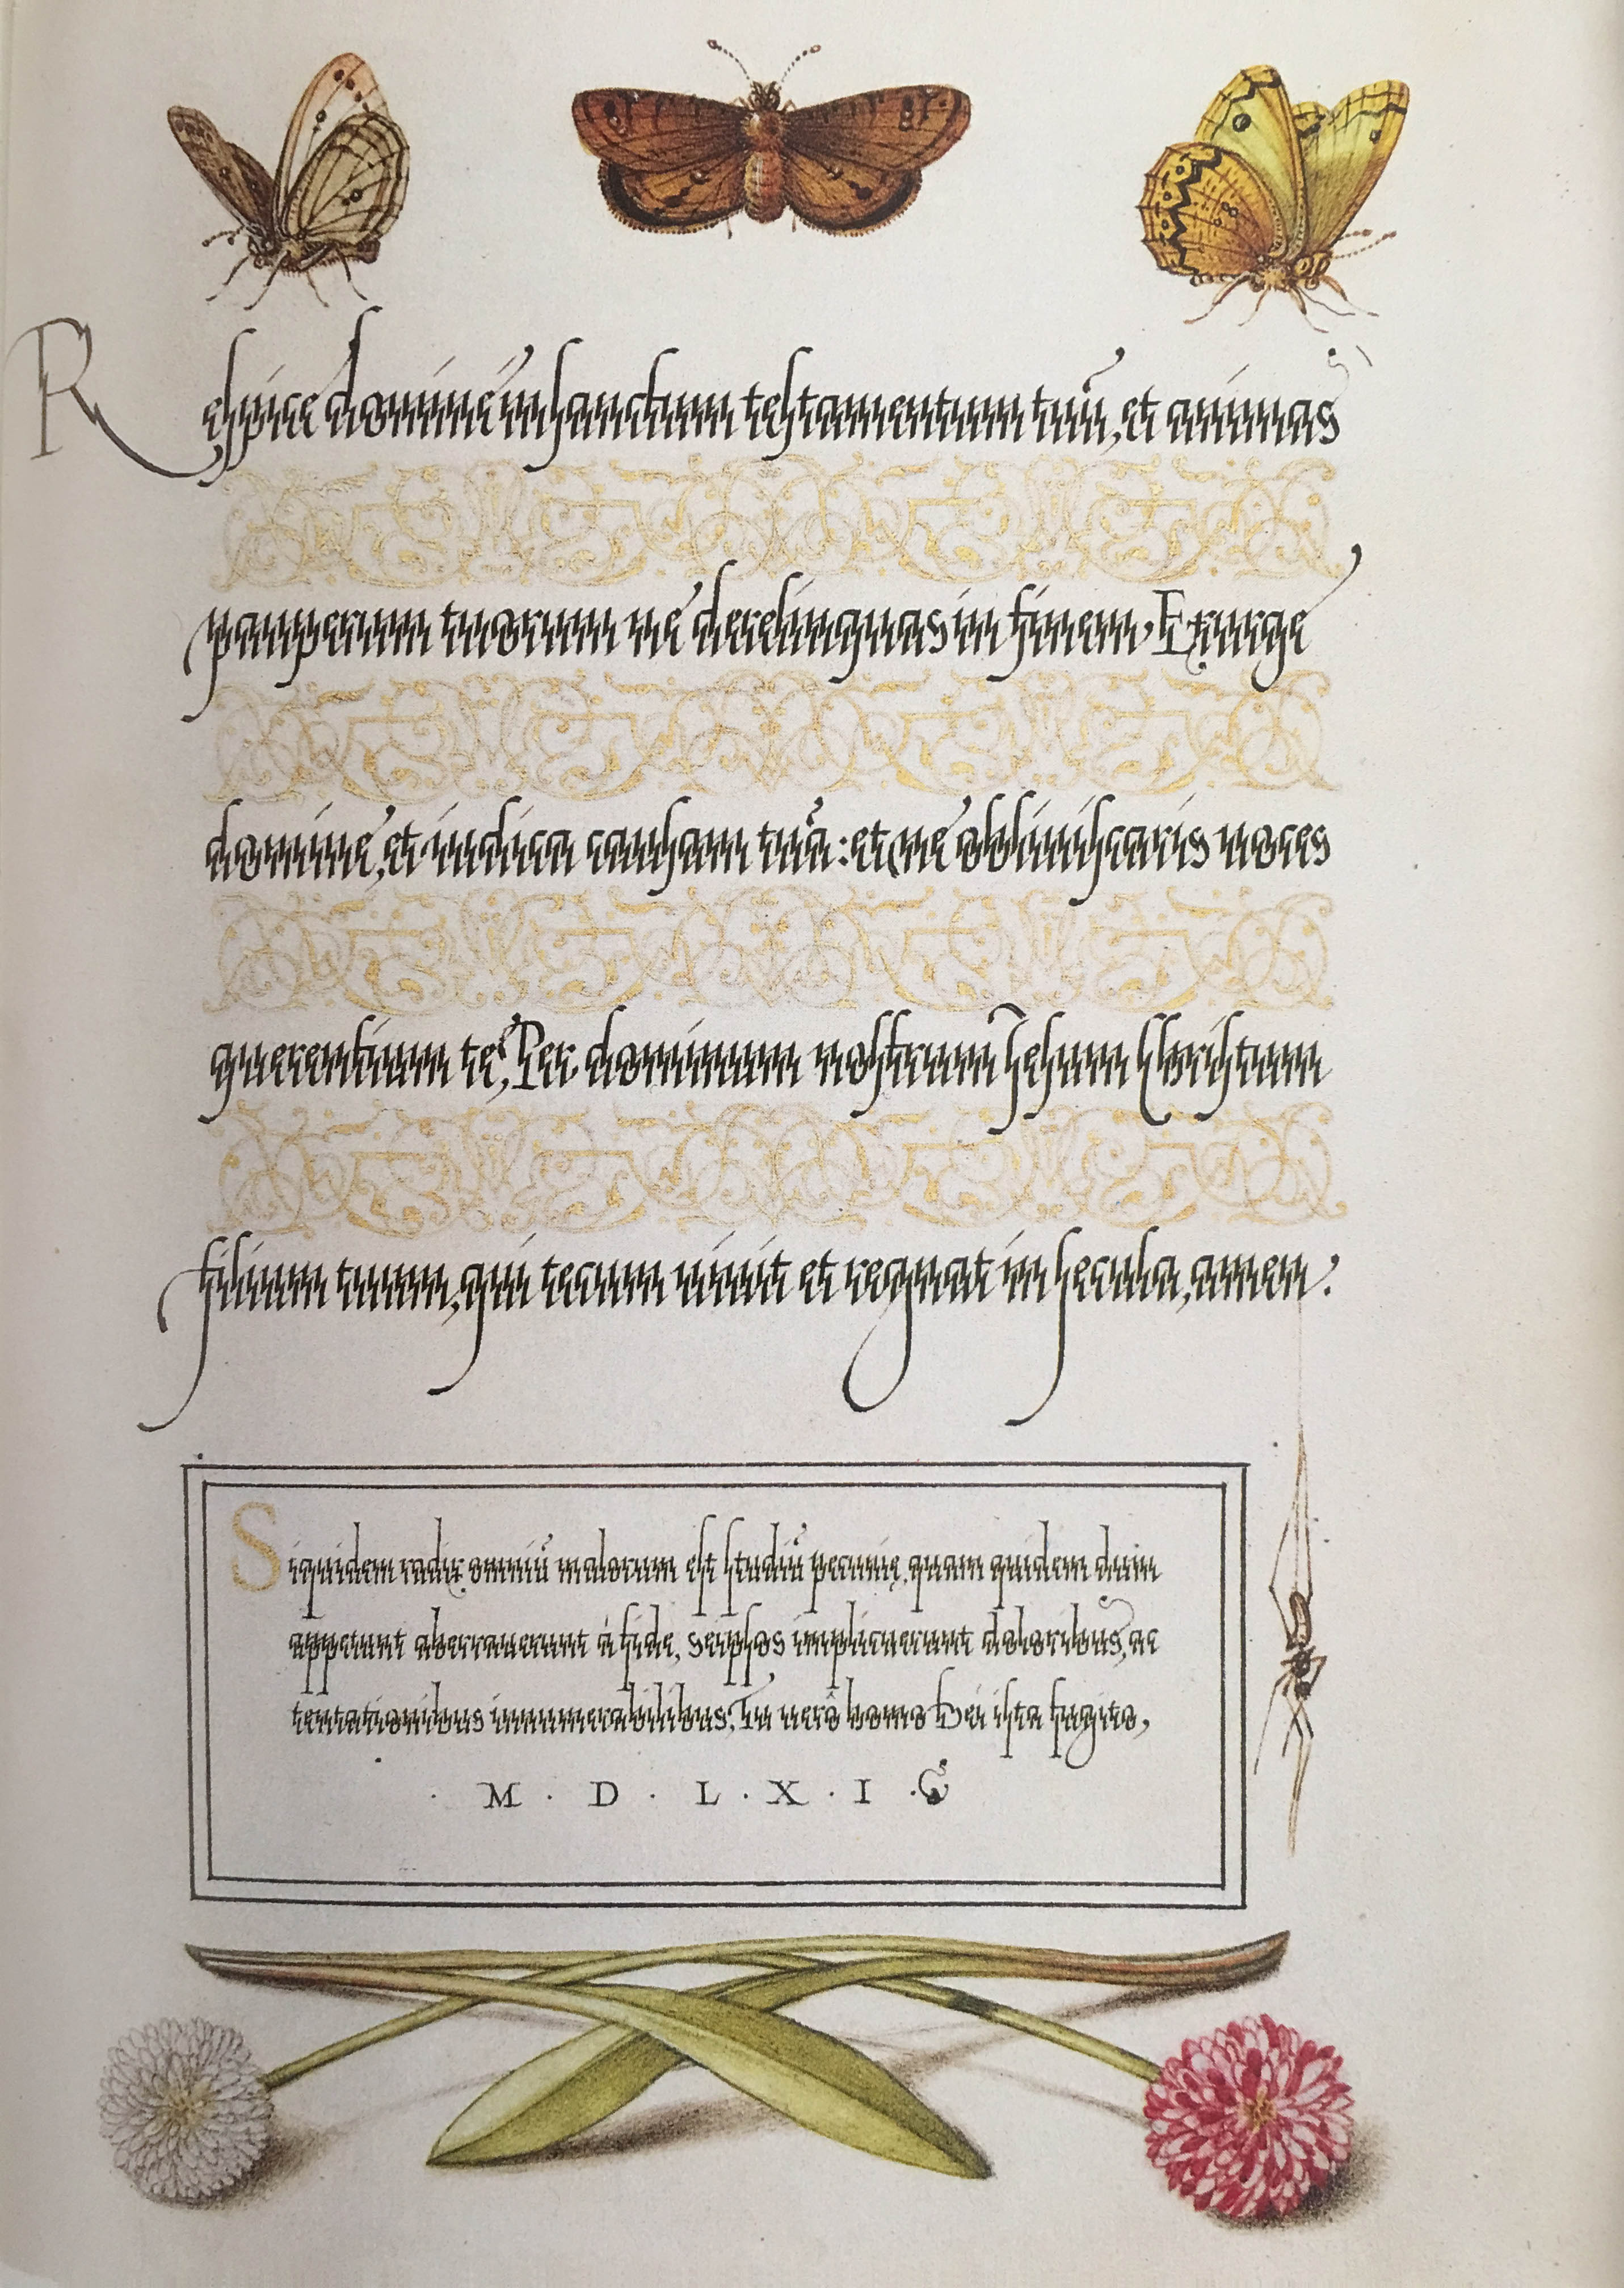 Respice domine in sanctum testamentum tuū, et animas
pauperum tuorum ne derelinquas in finem, Exurge
domine, et iudica causam tuā: et ne obliuiscaris uoces
querentium te, Per dominum nostrum Iesum Christum
filium tuum, qui tecum uiuit et regnat in secula, amen:
Siquidem radix omniū malorum est studiū pecunię, quam quidem dum
appetunt aberrauerunt à fide, seipsos implicuerunt doloribus, ac
tentationibus innumerabilibus. Tu uerò homo Dei ista fugito,
· M · D · L · X · I ·